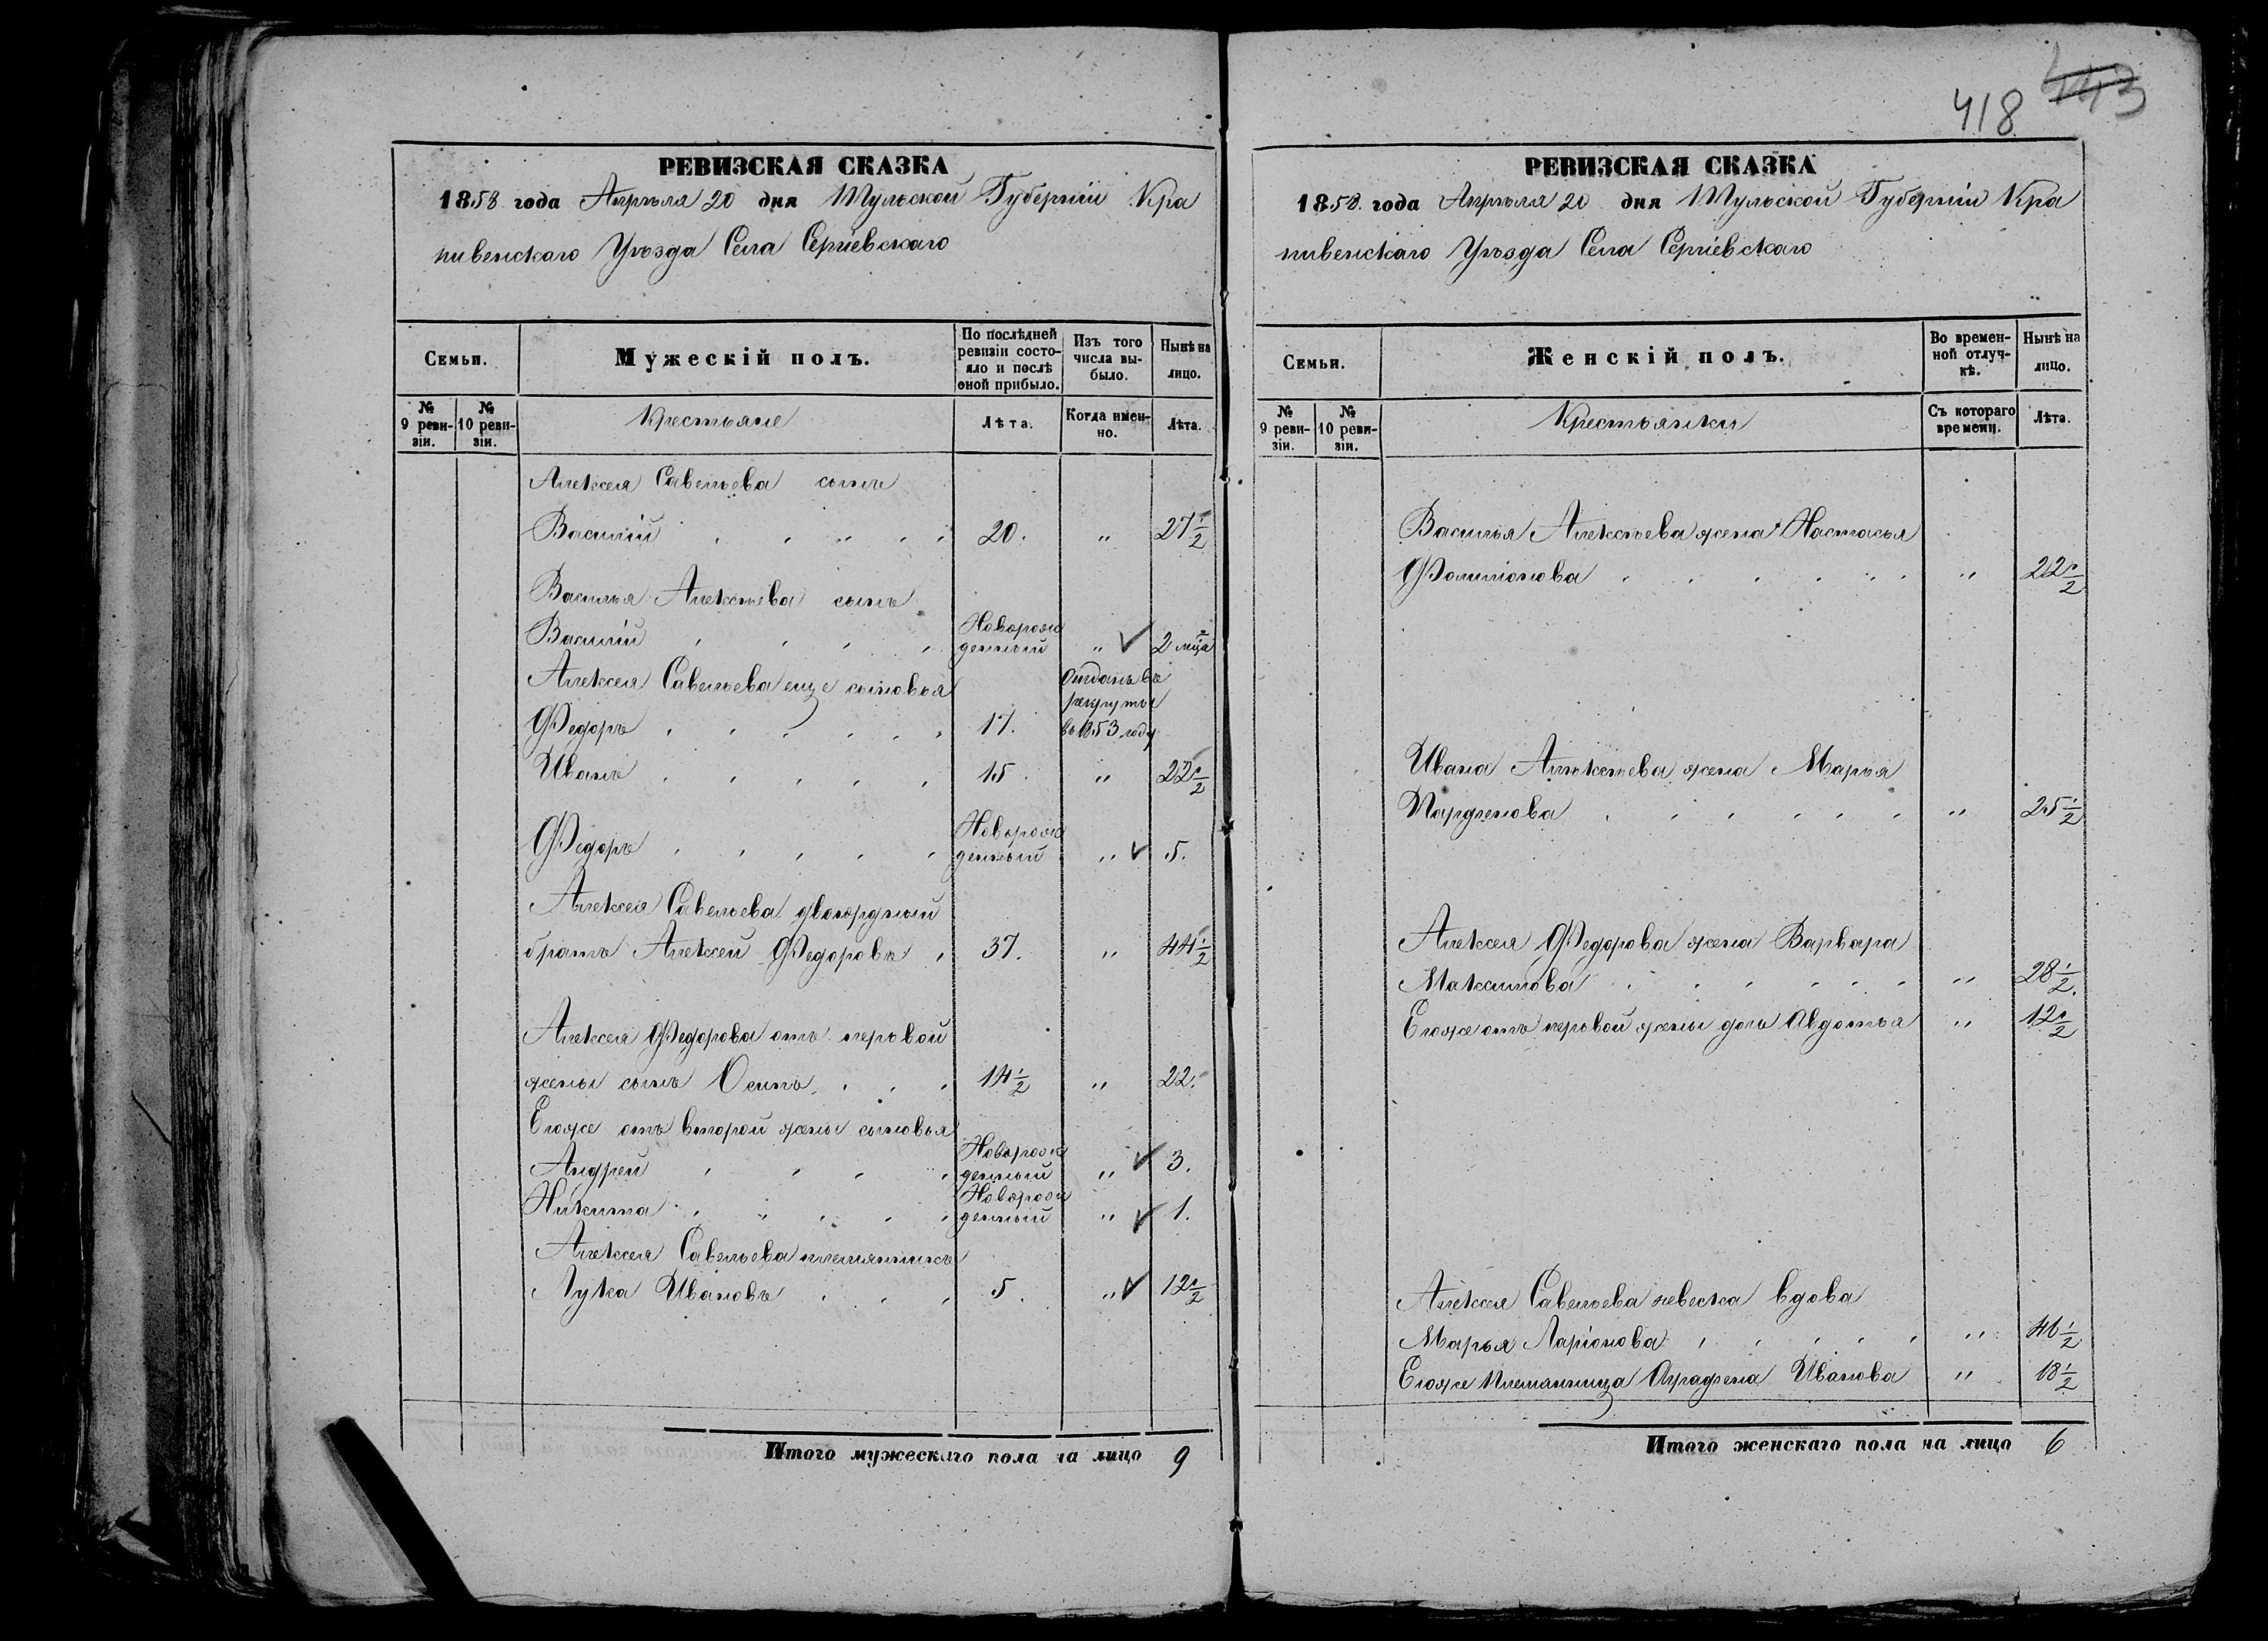 418 443
РЕВИЗСКАЯ СКАЗКА
1858 года Апрѣля 20 дня Тульской Губерніи Кра
пивенскаго Уѣзда Села Сергіевскаго
Семьи.
Мужескій полъ.
По послѣдней ревизіи состояло и послѣ оной прибыло.
Изъ того числа выбыло.
Нынѣ на лицо.
№ 9 ревизіи.
№ 10 ревизіи.
Крестьяне
Лѣта.
Когда именно.
Лѣта.
Алексея Савельева сынъ
Василій 20. " 27 1/2
Василья Алексѣева сынъ
Василій Новорожденный " 2 мца
Алексея Савельева еще сыновья
Ѳедоръ 17. Отданъ въ рекруты въ 1853 году
Иванъ 15. " 22 1/2
Ѳедоръ Новорожденный " 5.
Алексея Савельева двоюрдный
братъ Алексей Ѳедоровъ 37. " 44 1/2
Алексея Ѳедорова отъ первой
жены сынъ Осипъ 14 1/2 " 22.
Егоже отъ второй жены сыновья
Андрей Новорожденный " 3.
Никита Новорожденный " 1.
Алексея Савельева племянникъ
Лука Ивановъ 5. " 12 1/2
Итого мужескаго пола на лицо 9
РЕВИЗСКАЯ СКАЗКА
1858. года Апрѣля 20 дня Тульской Губерніи Кра
пивенскаго Уѣзда Села Сергіевскаго
Семьи.
Женскій полъ.
Во временной отлучкѣ.
Нынѣ на лицо.
№ 9 ревизіи.
№ 10 ревизіи.
Крестьянки
Съ котораго времени.
Лѣта.
Василья Алексѣева жена Настасья
" 22 1/2
Ивана Алексѣева жена Марья
Парфенова " 25 1/2
Алексея Ѳедорова жена Варвара
Максимова " 28 1/2.
Егоже отъ первой жены дочь Авдотья " 12 1/2
Алексея Савельева невестка вдова
Марья Ларіонова " 46 1/2
Егоже Племянница Аграфена Иванова " 18 1/2
Итого женскаго пола на лицо 6